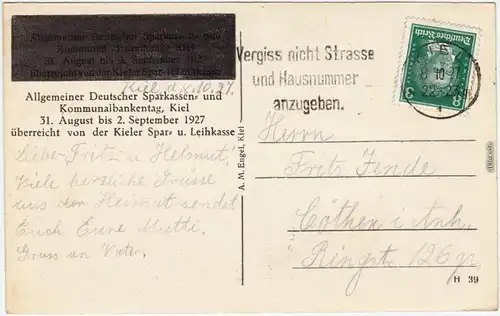 Allgemeiner Deutscher Sparkassen- und
Kommunalbankentag, Kiel
31. August bis 2. September 1927
überreicht von der Kieler Spar- u. Leihkasse
Kiel d. 8.10.27.
Allgemeiner Deutscher Sparkassen- und
Kommunalbankentag, Kiel
31. August bis 2. September 1927
überreicht von der Kieler Spar- u. Leihkasse
Lieber Fritz u Helmut!
Viele herzliche Grüsse
aus der Heimat sendet
Euch Eure Mutti.
Gruss an Vater.
A. M. Engel, Kiel
Vergiss nicht Strasse
und Hausnummer
anzugeben.
Deutsches Reich
8
8
8 10 27
Herrn
Fritz Jende
Cöthen i Anh.
Ringstr 126 gr.
H 39